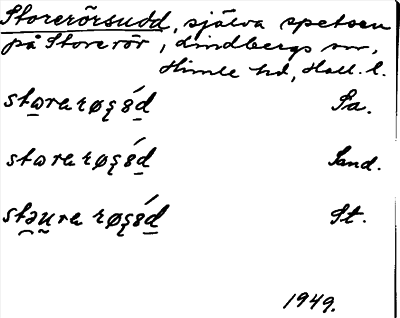 Storerörsudd, själva spetsen
på Storerör, Lindbergs sn,
Himle hd, Hall. l.
stɷra røʂsd Sa.
stɷra røʂsd Sand.
stəura røʂsd St.
1949.